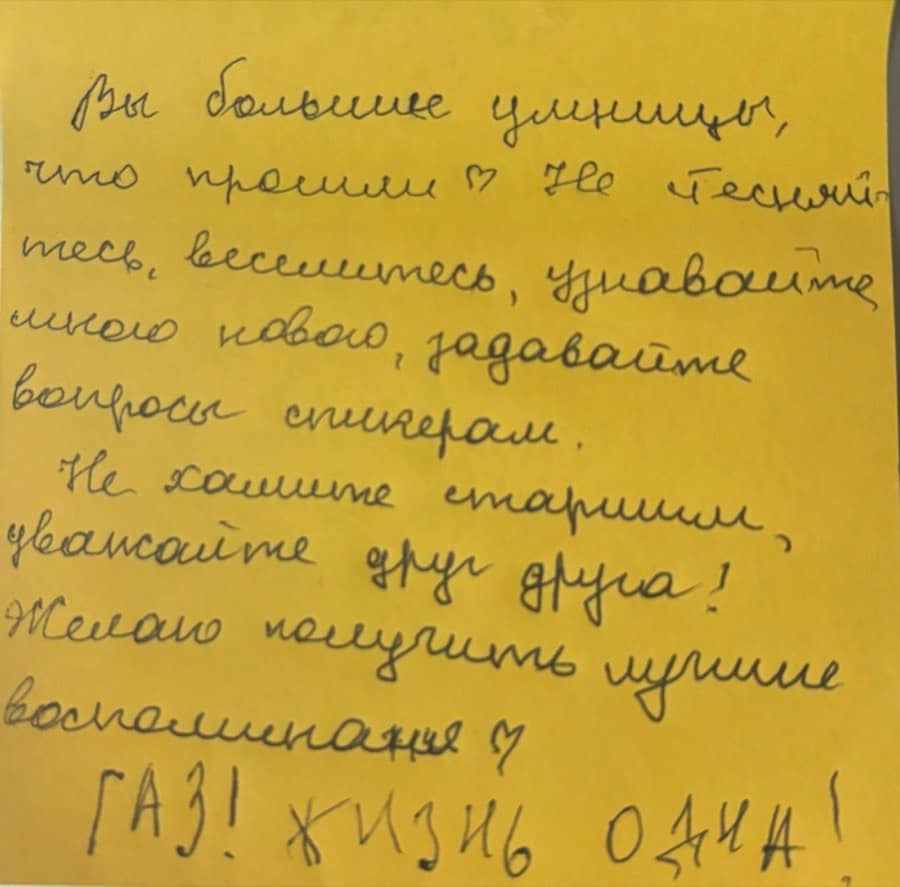 Вы большие умницы,
что прошли ♡ Не стесняй-
тесь, веселитесь, узнавайте
много нового, задавайте
вопросы спикерам.
Не хамите старшим,
уважайте друг друга!
Желаю получить лучшие
воспоминания ♡
ГАЗ! ЖИЗНЬ ОДНА!